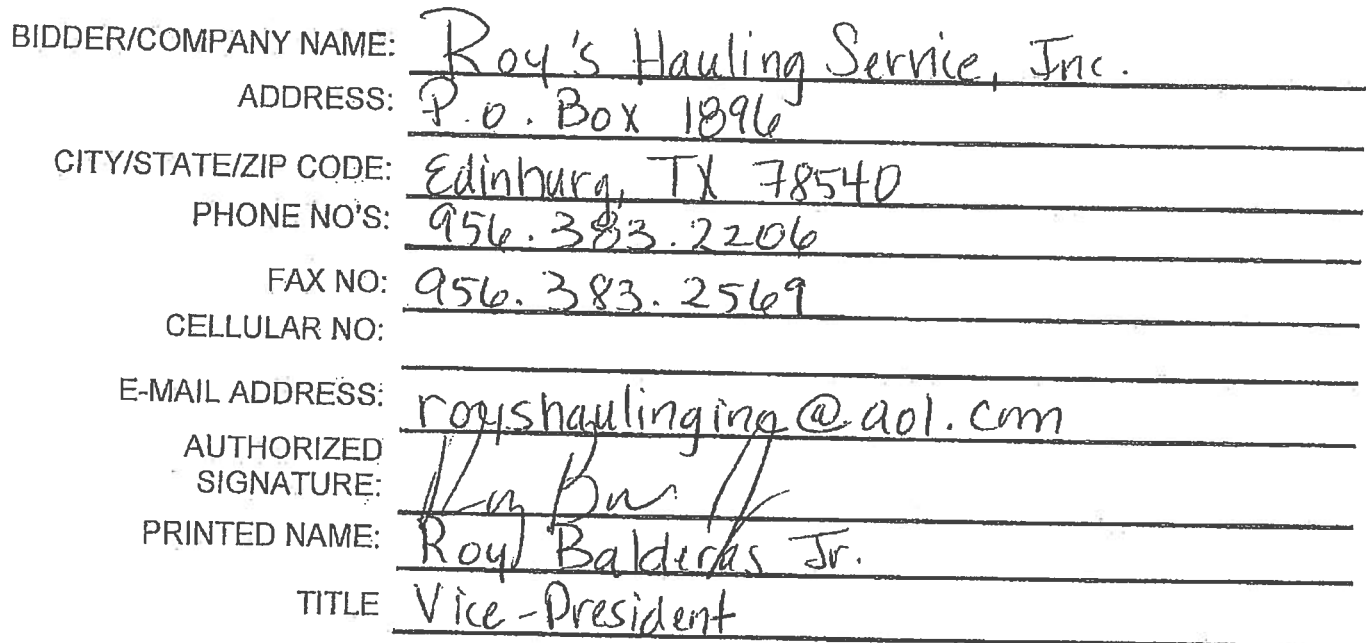 BIDDER/COMPANY NAME: Roy's Hauling Service, Inc.
ADDRESS: P.O. Box 1896
CITY/STATE/ZIP CODE: Edinburg, TX 78540
PHONE NO'S: 956.383.2206
FAX NO: 956.383.2569
CELLULAR NO:
E-MAIL ADDRESS: @aol.com
AUTHORIZED
SIGNATURE:
PRINTED NAME: Roy Balderas Jr.
TITLE Vice-President